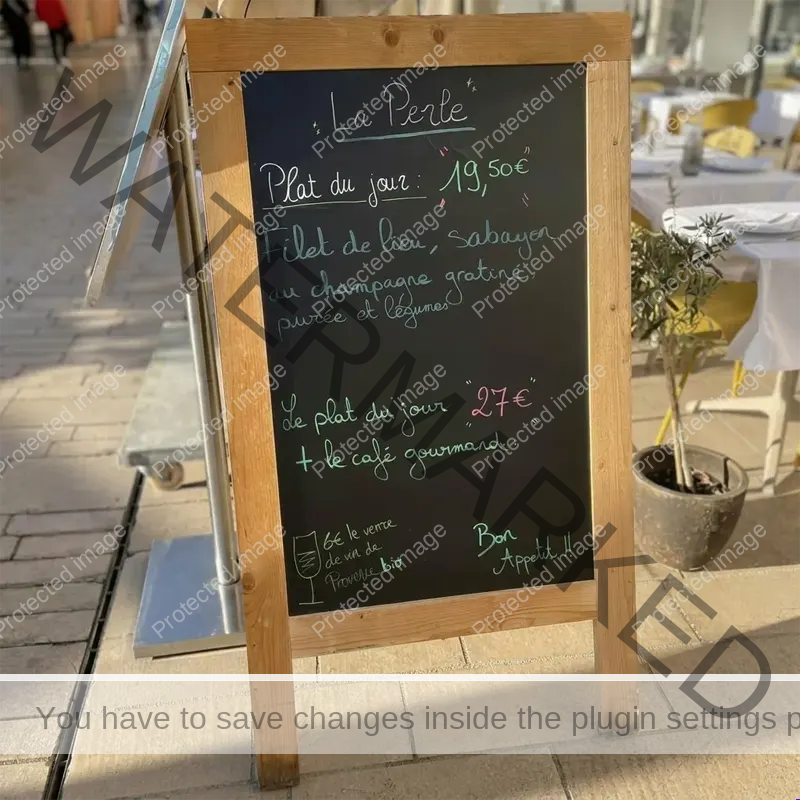 La Perle
Plat du jour : "19,50€"
Filet de lieu, Sabayon
au champagne gratiné,
purée et légumes
Le plat du jour "27€"
+ le café gourmand
6€ le verre
de vin de
Provence bio
Bon
Appétit !!
WATERMARKED
Protected image
You have to save changes inside the plugin settings p